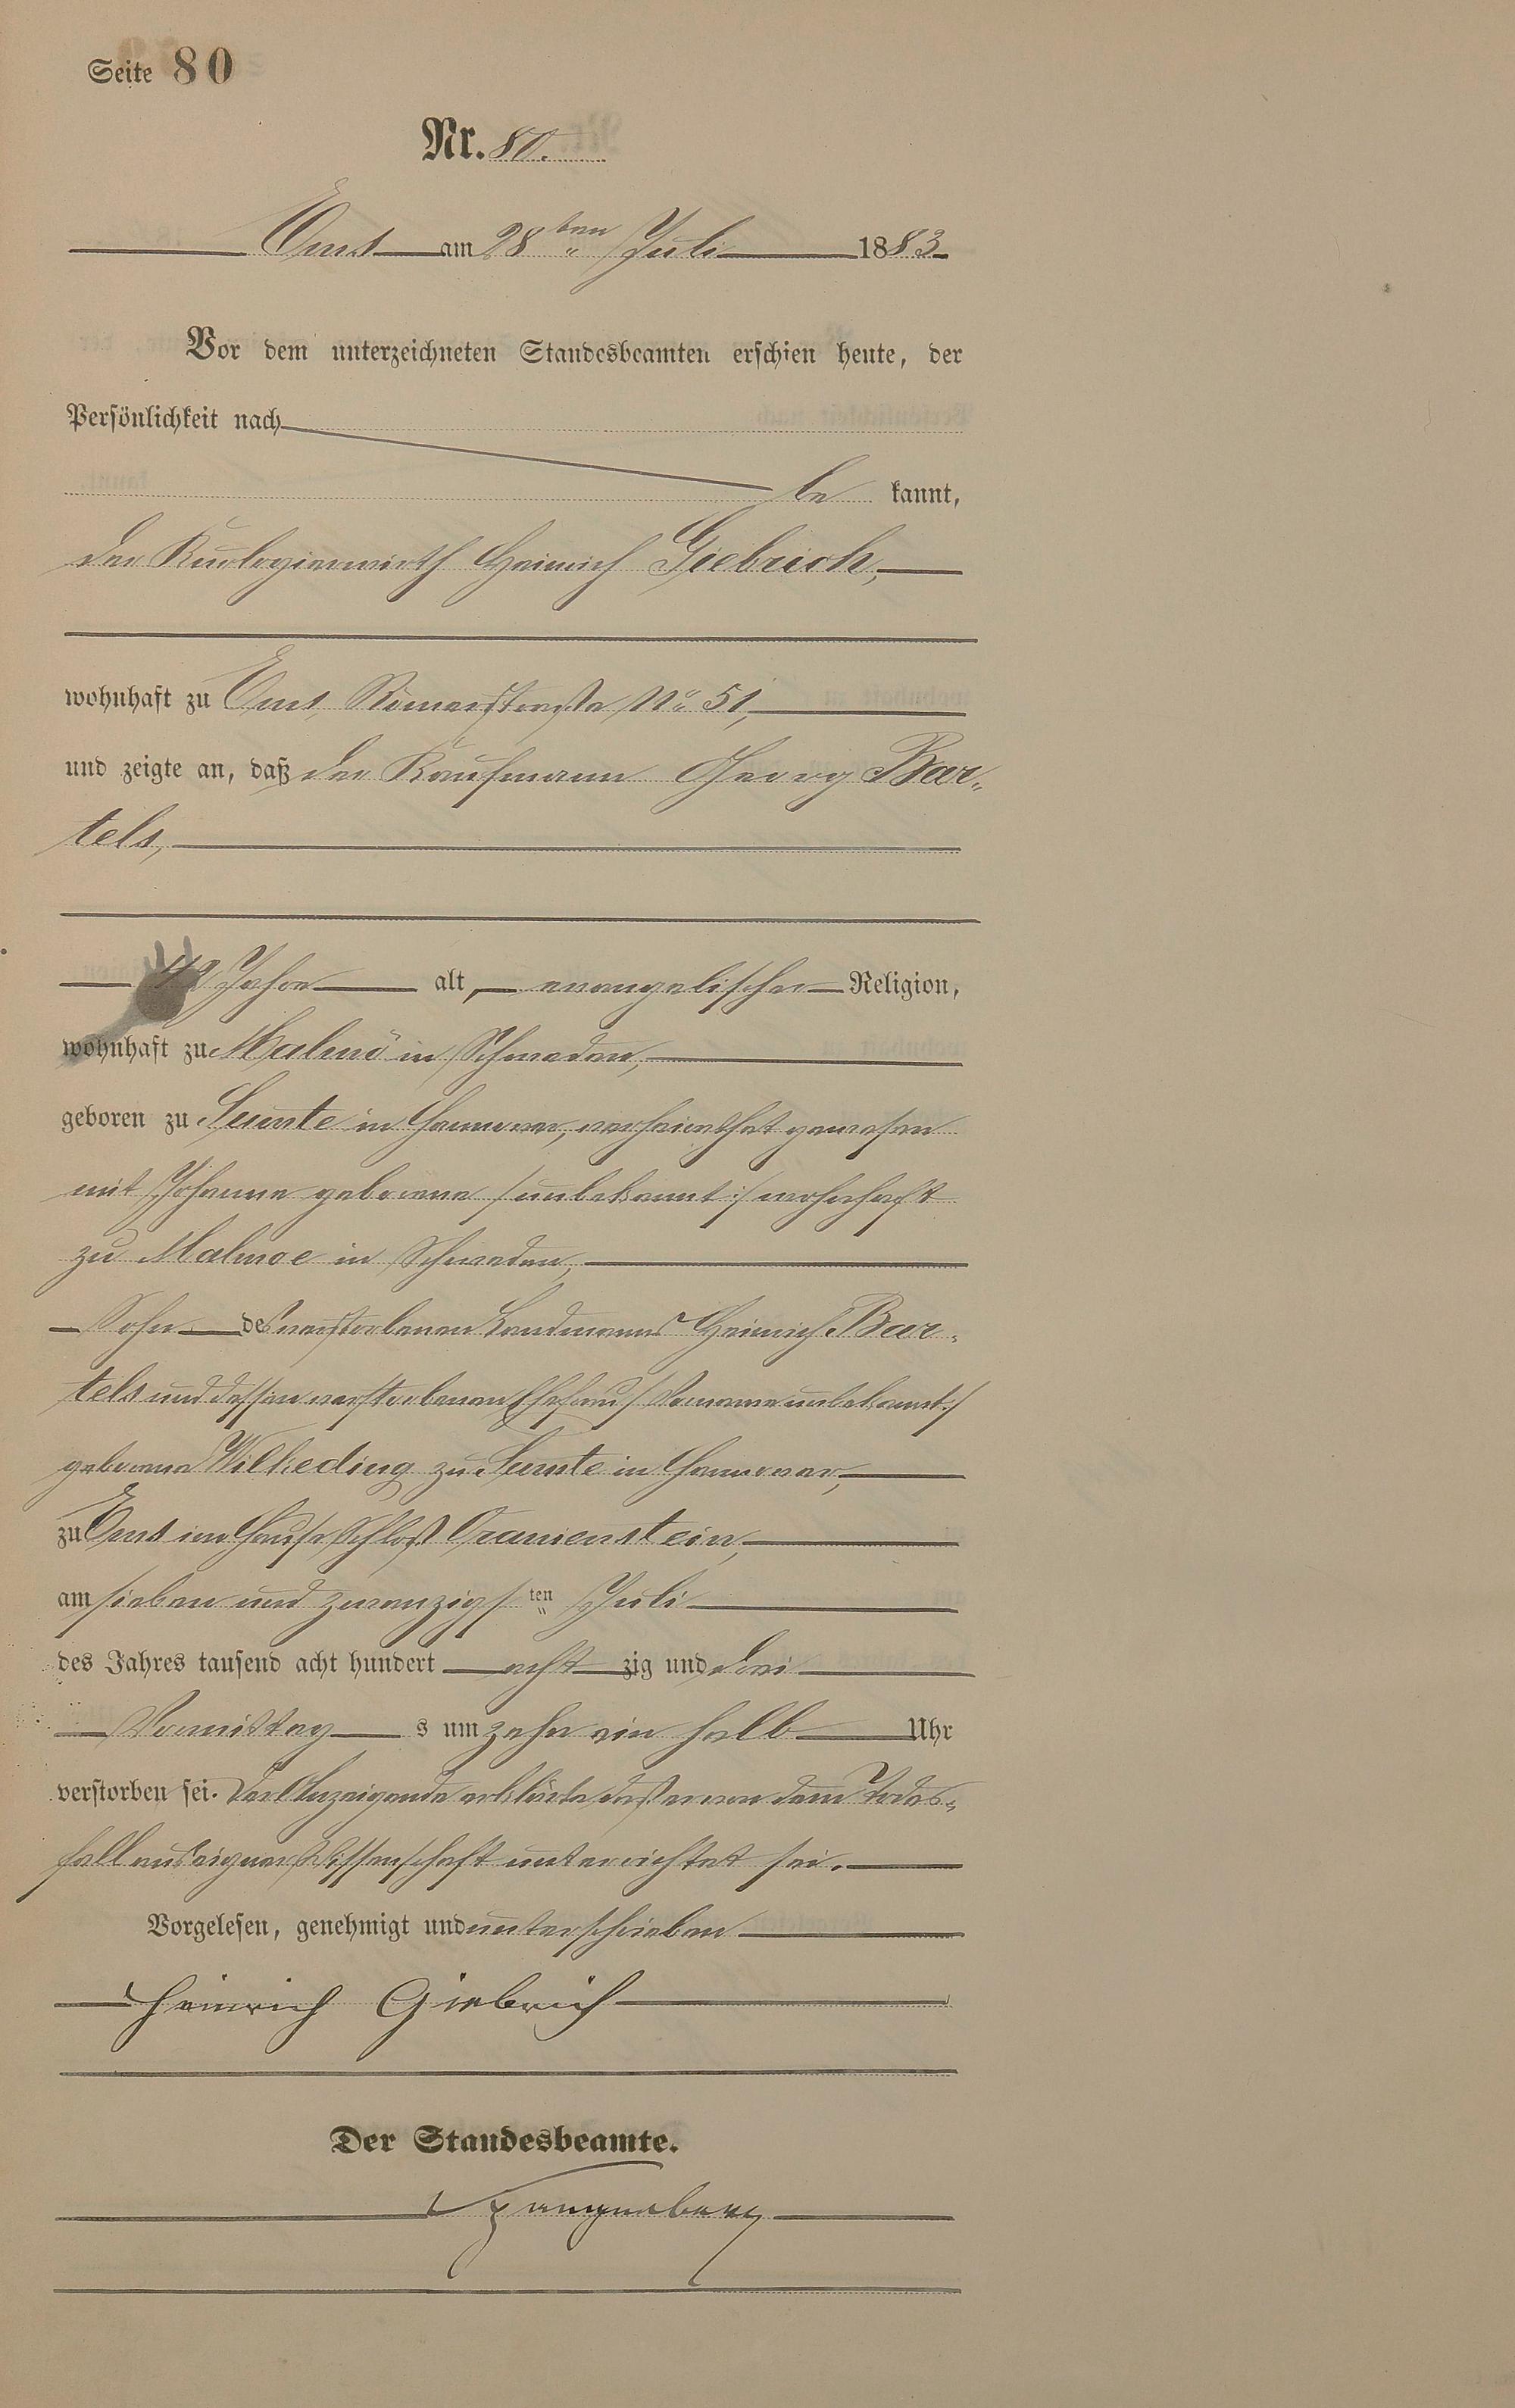 Seite 80
Nr. 80.
Ems am 28ten Juli 1883
Vor dem unterzeichneten Standesbeamten erschien heute, der
Persönlichkeit nach
be kannt,
der Kurlogierwirth Heinrich Giebrich,
wohnhaft zu Ems, Römerstraße No 51,
und zeigte an, daß der Kaufmann Georg Bar-
tels,
Jahre alt, evangelischer Religion,
wohnhaft zu Malmö in Schweden,
geboren zu in Hannover, verheirathet gewesen
mit Johanne geborene /:unbekannt:/ wohnhaft
zu Malmoe in Schweden,
Sohn des verstorbenen Landmanns Heinrich Bar-
tels und dessen verstorbenen Ehefrau /:Vorname unbekannt:/
geborene Wilkeding zu in Hannover,
zu Ems im Hause Schloß Oranienstein,
am sieben und zwanzigsten Juli
des Jahres tausend acht hundert acht zig und drei
Vormittag s um zehn ein halb Uhr
verstorben sei. Der Anzeigende erklärte daß er von dem Todes-
fall aus eigner Wissenschaft unterrichtet sei.
Vorgelesen, genehmigt und unterschrieben
Heinrich Giebrich
Der Standesbeamte.